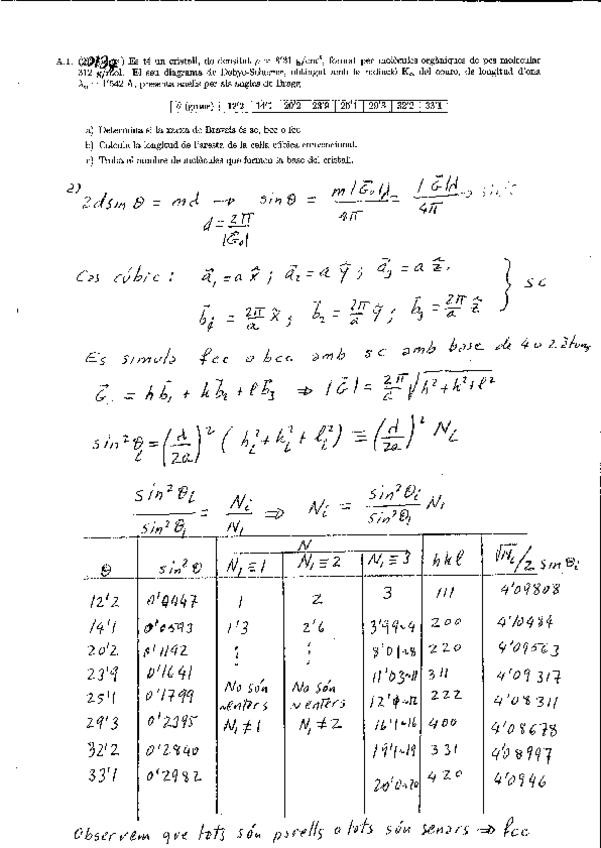 A.1. Es té un cristall, de densitat ρ = 8'31 g/cm³, format per molècules orgàniques de pes molecular
312 g/mol. El seu diagrama de Debye-Scherrer, obtingut amb la radiació Kα del coure, de longitud d'ona
λα = 1'542 Å, presenta anells per als angles de Bragg
θ (graus) 12'2 14'1 20'2 23'9 25'1 29'3 32'2 33'1
a) Determina si la xarxa de Bravais és sc, bcc o fcc
b) Calcula la longitud de l'aresta de la cel·la cúbica convencional.
c) Troba el nombre de molècules que formen la base del cristall.
a) 2d sin θ = mλ → sin θ = m|G₀|λ/4π = |G|λ/4π →
d = 2π/|G₀|
Cas cúbic: a₁ = a x̂; a₂ = a ŷ; a₃ = a ẑ,
b₁ = 2π/a x̂; b₂ = 2π/a ŷ; b₃ = 2π/a ẑ } sc
Es simula fcc o bcc amb sc amb base de 4 o 2
G = hb₁ + kb₂ + lb₃ ⇒ |G| = 2π/a √h²+k²+l²
sin²θi = (λ/2a)² (hi²+ki²+li²) ≡ (λ/2a)² Ni
sin²θi/sin²θ₁ = Ni/N₁ ⇒ Ni = sin²θi/sin²θ₁ N₁
N
θ sin²θ N₁≡1 N₁≡2 N₁≡3 hkl √Ni/2 sin θi
12'2 0'0447 1 2 3 111 4'09808
14'1 0'0593 1'3 2'6 3'99~4 200 4'10484
20'2 0'1192 ⋮ ⋮ 8'01~8 220 4'09563
23'9 0'1641 No són No són 11'03~11 311 4'09317
25'1 0'1799 enters enters 12'1~12 222 4'08311
29'3 0'2395 N₁≠1 N₁≠2 16'1~16 400 4'08678
32'2 0'2840 19'1~19 331 4'08997
33'1 0'2982 20'0~20 420 4'0946
Observem que tots són parells o tots són senars ⇒ fcc